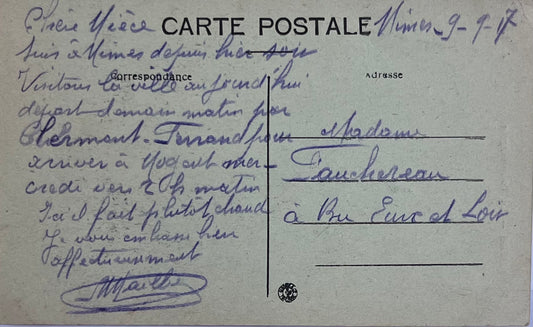 CARTE POSTALE
Nimes - 9 - 9 - 17
Chère Nièce
Suis à Nimes depuis hier soir
Correspondance
Adresse
Visitons la ville aujourd'hui
départ demain matin par
Clermont-Ferrand pour
arriver à Nogent mer-
credi vers matin
Ici il fait plutôt chaud
Je vous embrasse bien
affectueusement
Madame
Fauchereau
à Bu Eure et Loir